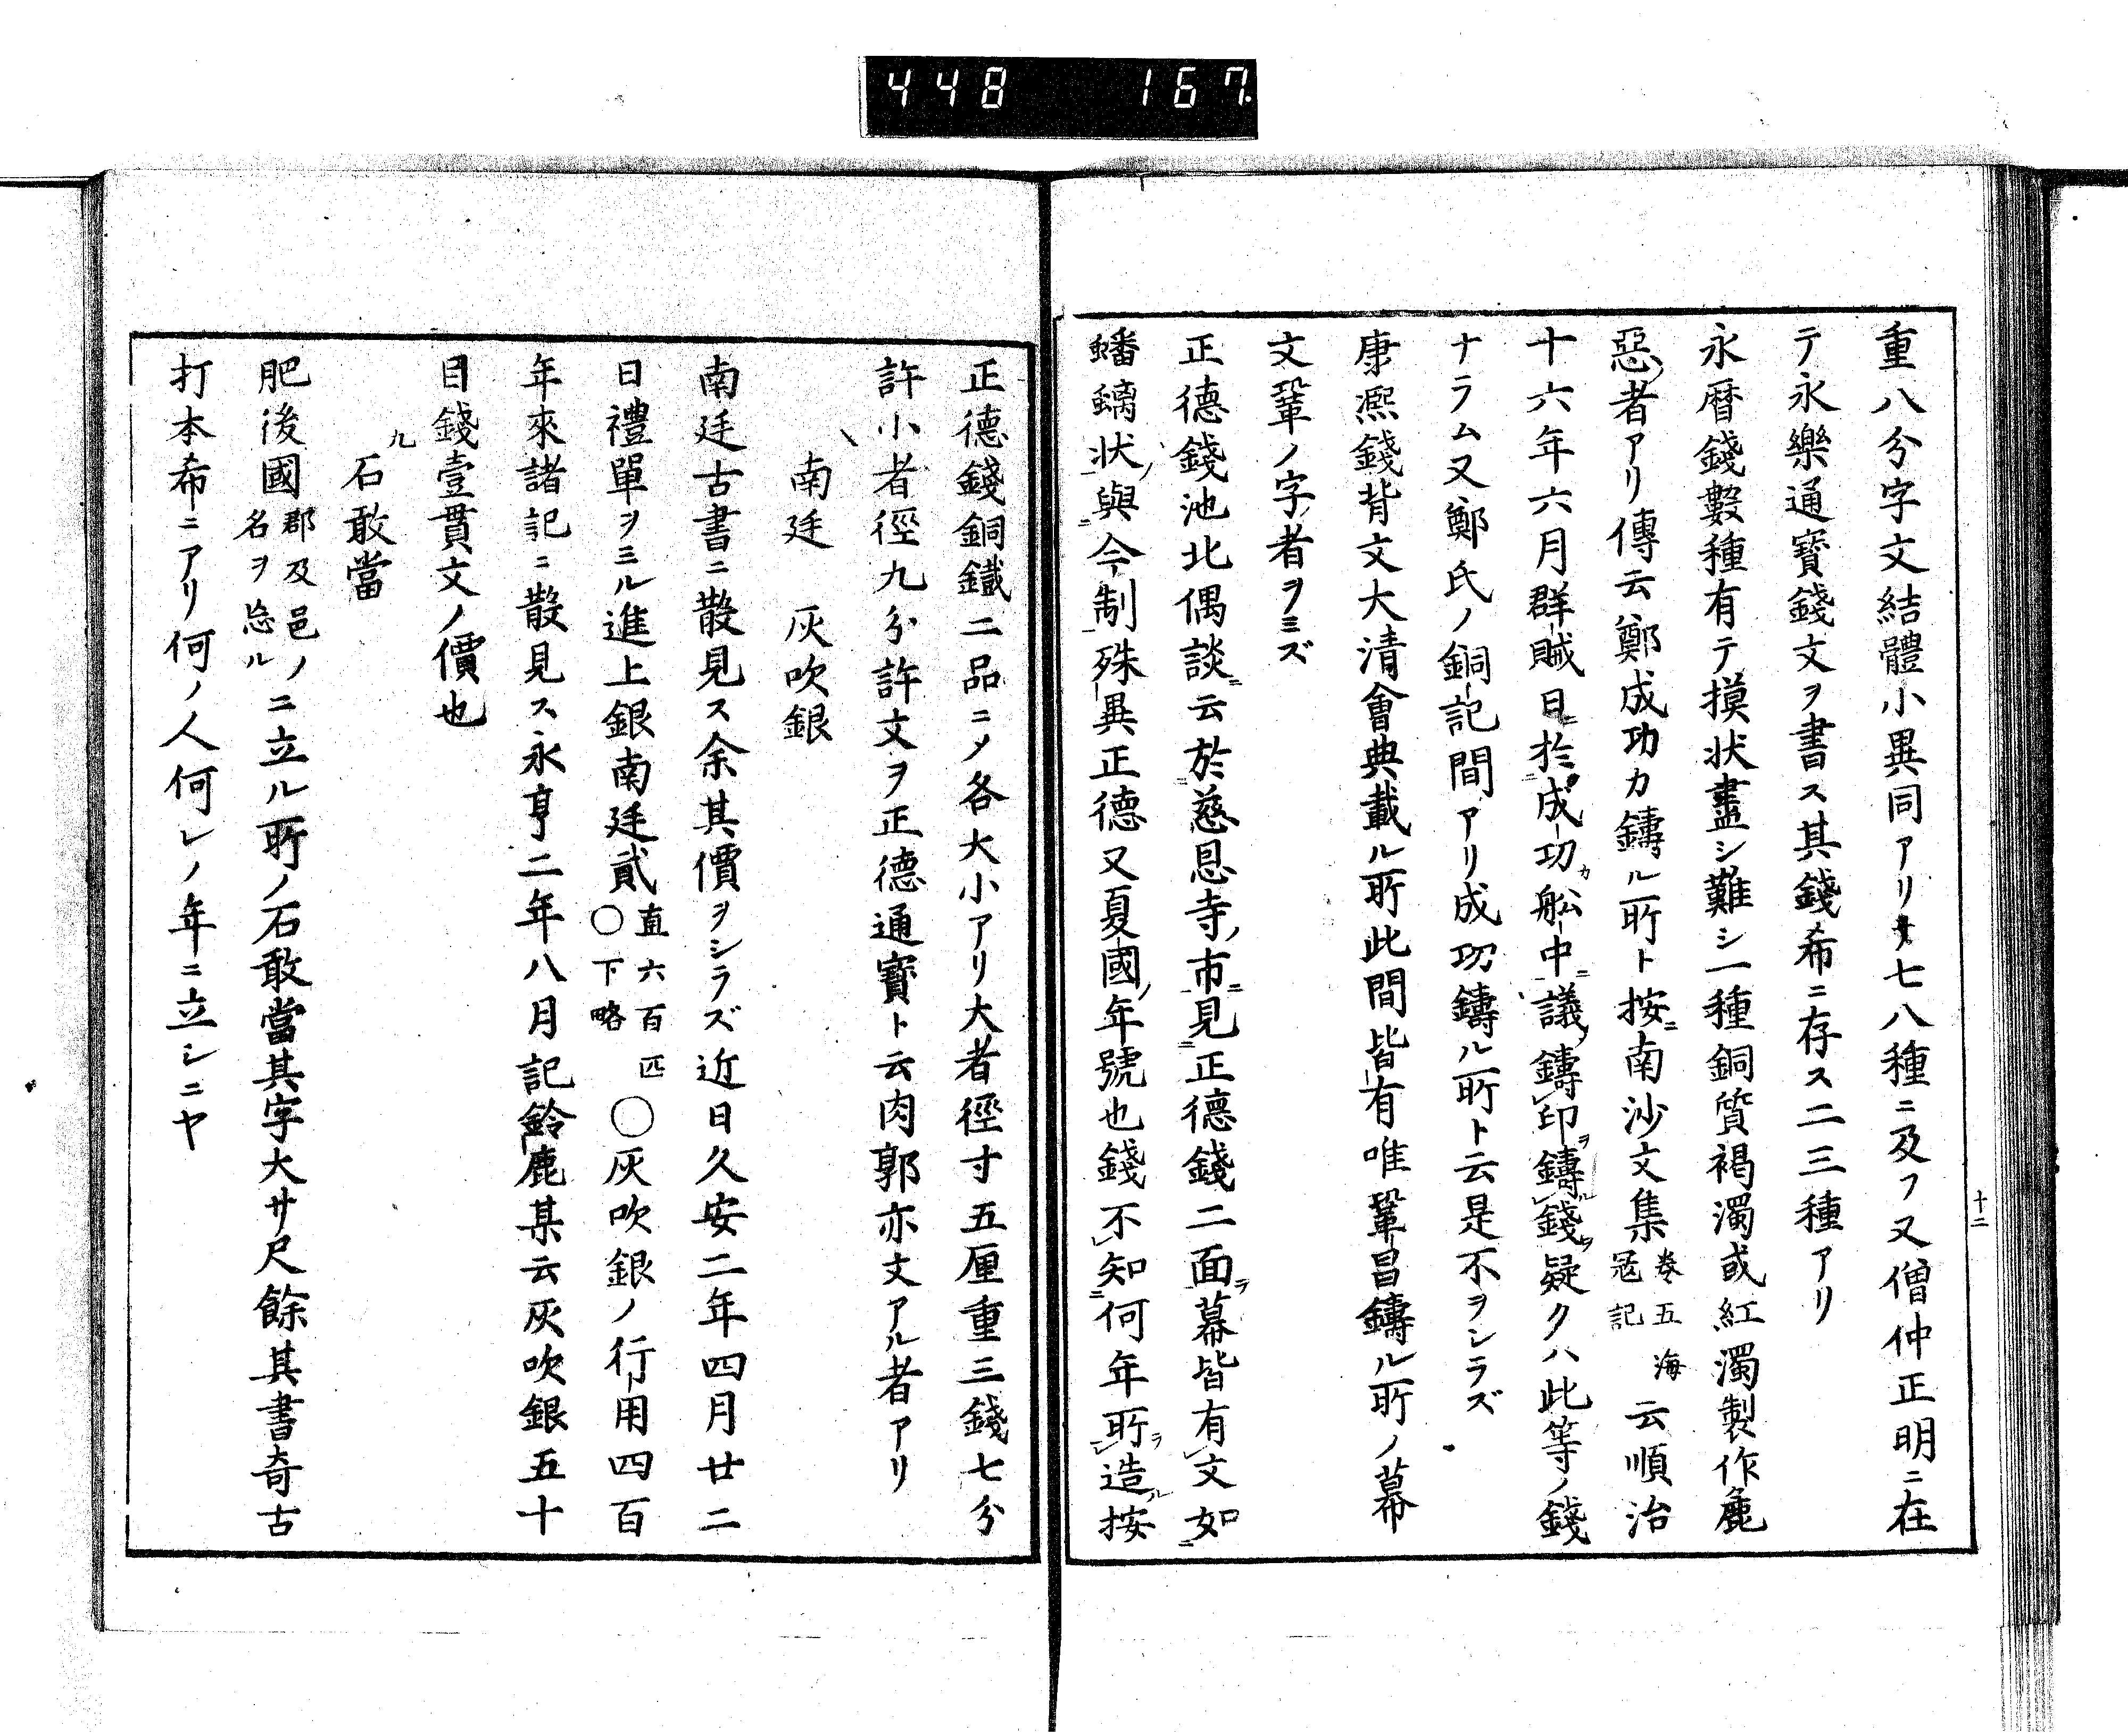 448 167.
十二
重八分字文結體小異同アリキ七八種ニ及フ又僧仲正明ニ在
テ永樂通寳錢文ヲ書ス其錢希ニ存ス二三種アリ
永曆錢數種有テ摸状盡シ難シ一種銅質褐濁或紅濁製作麁
惡ノ者アリ傳云鄭成功カ鑄ル所ト按ニ南沙文集 卷五海寇記 云順治
十六年六月群賊日ニ於成功カ舩中ニ議鑄印ヲ鑄ル錢ヲ疑クハ此等ノ錢
ナラム又鄭氏ノ銅記間アリ成功鑄ル所ト云是不ヲシラズ
康熙錢背文大清會典載ル所此間皆有唯鞏昌鑄ル所ノ幕
文鞏ノ字ノ者ヲミズ
正德錢池北偶談ニ云於慈恩寺ノ市ニ見正德錢二面ヲ幕皆有文如
蟠螭状ノ與今制殊異正德又夏國ノ年號也錢不知何年所ヲ造ル按
正德錢銅鐵二品ニメ各大小アリ大者徑寸五厘重三錢七分
許小者徑九分許文ヲ正德通寳ト云肉郭亦丈アル者アリ
南廷 灰吹銀
南廷古書ニ散見ス余其價ヲシラズ近日久安二年四月廿二
日禮單ヲミル進上銀南廷貳 直六百匹〇下略 〇灰吹銀ノ行用四百
年來諸記ニ散見ス永亨二年八月記鈴鹿某云灰吹銀五十
目錢壹貫文ノ價也
九 石敢當
肥後國 郡及邑ノ名ヲ忘ル ニ立ル所ノ石敢當其字大サ尺餘其書奇古
打本希ニアリ何ノ人何レノ年ニ立シニヤ